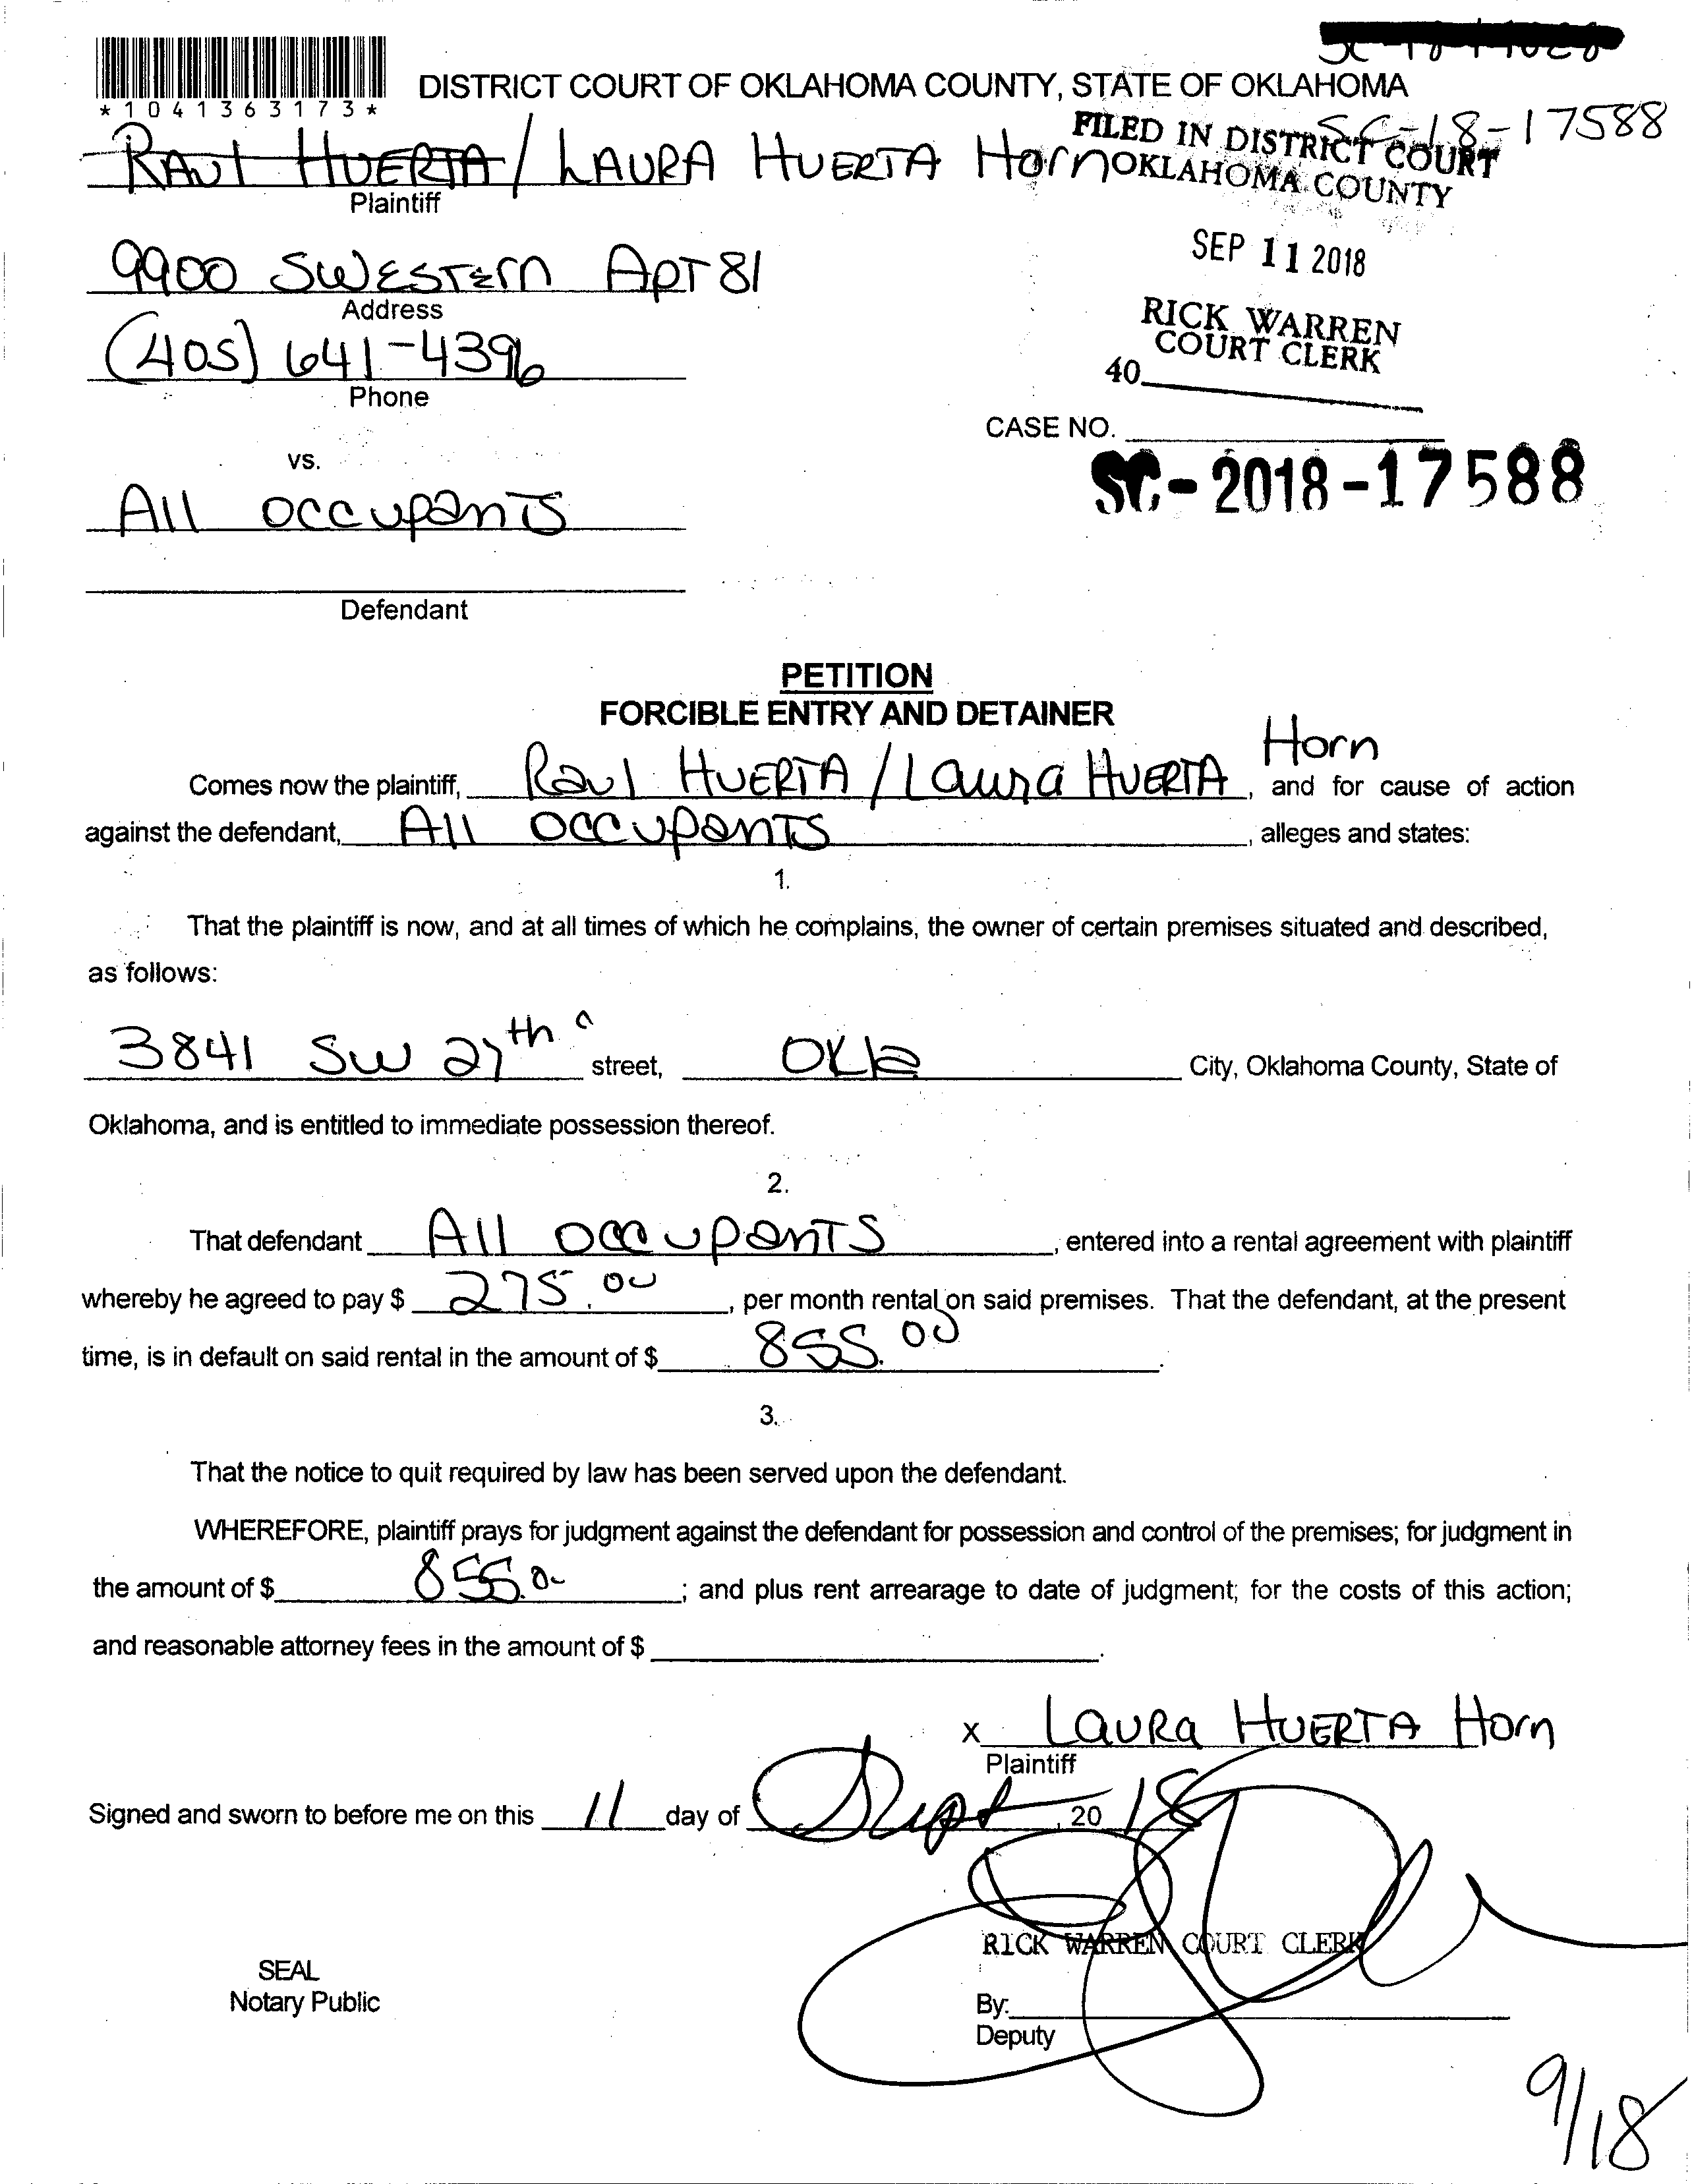 *1041363173*
DISTRICT COURT OF OKLAHOMA COUNTY, STATE OF OKLAHOMA
SC-18-17588
RAUl HUERTA / LAURA HUERTA Horn
Plaintiff
FILED IN DISTRICT COURT
OKLAHOMA COUNTY
9900 SWESTErn APT 81
Address
SEP 11 2018
(405) 641-4396
Phone
RICK WARREN
COURT CLERK
40
CASE NO.
SC-2018-17588
vs.
All occupanTs
Defendant
PETITION
FORCIBLE ENTRY AND DETAINER
Comes now the plaintiff, Raul HUERTA / Laura HUERTA Horn, and for cause of action
against the defendant, All occupanTs, alleges and states:
1.
That the plaintiff is now, and at all times of which he complains, the owner of certain premises situated and described,
as follows:
3841 SW 27th street, Okla City, Oklahoma County, State of
Oklahoma, and is entitled to immediate possession thereof.
2.
That defendant All occupanTs, entered into a rental agreement with plaintiff
whereby he agreed to pay $ 275.00, per month rental on said premises. That the defendant, at the present
time, is in default on said rental in the amount of $ 855.00.
3.
That the notice to quit required by law has been served upon the defendant.
WHEREFORE, plaintiff prays for judgment against the defendant for possession and control of the premises; for judgment in
the amount of $ 855.0-; and plus rent arrearage to date of judgment; for the costs of this action;
and reasonable attorney fees in the amount of $.
x Laura HUERTA Horn
Plaintiff
Signed and sworn to before me on this 11 day of Sept, 2018
RICK WARREN COURT CLERK
SEAL
Notary Public
By:
Deputy
9/18